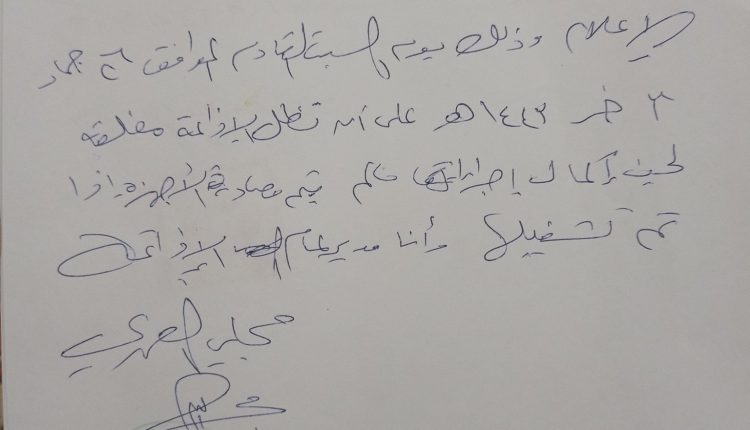 الإعلام وذلك يوم السبت القادم الموافق جماد
٣ خر ١٤٤٣هـ على أن تظل الإذاعة مغلقة
لحين إكمال إجراءاتها مالم يتم مصادرة الأجهزة إذا
تم تشغيلها وأنا مدير عام الإذاعة
مجلي الصمدي